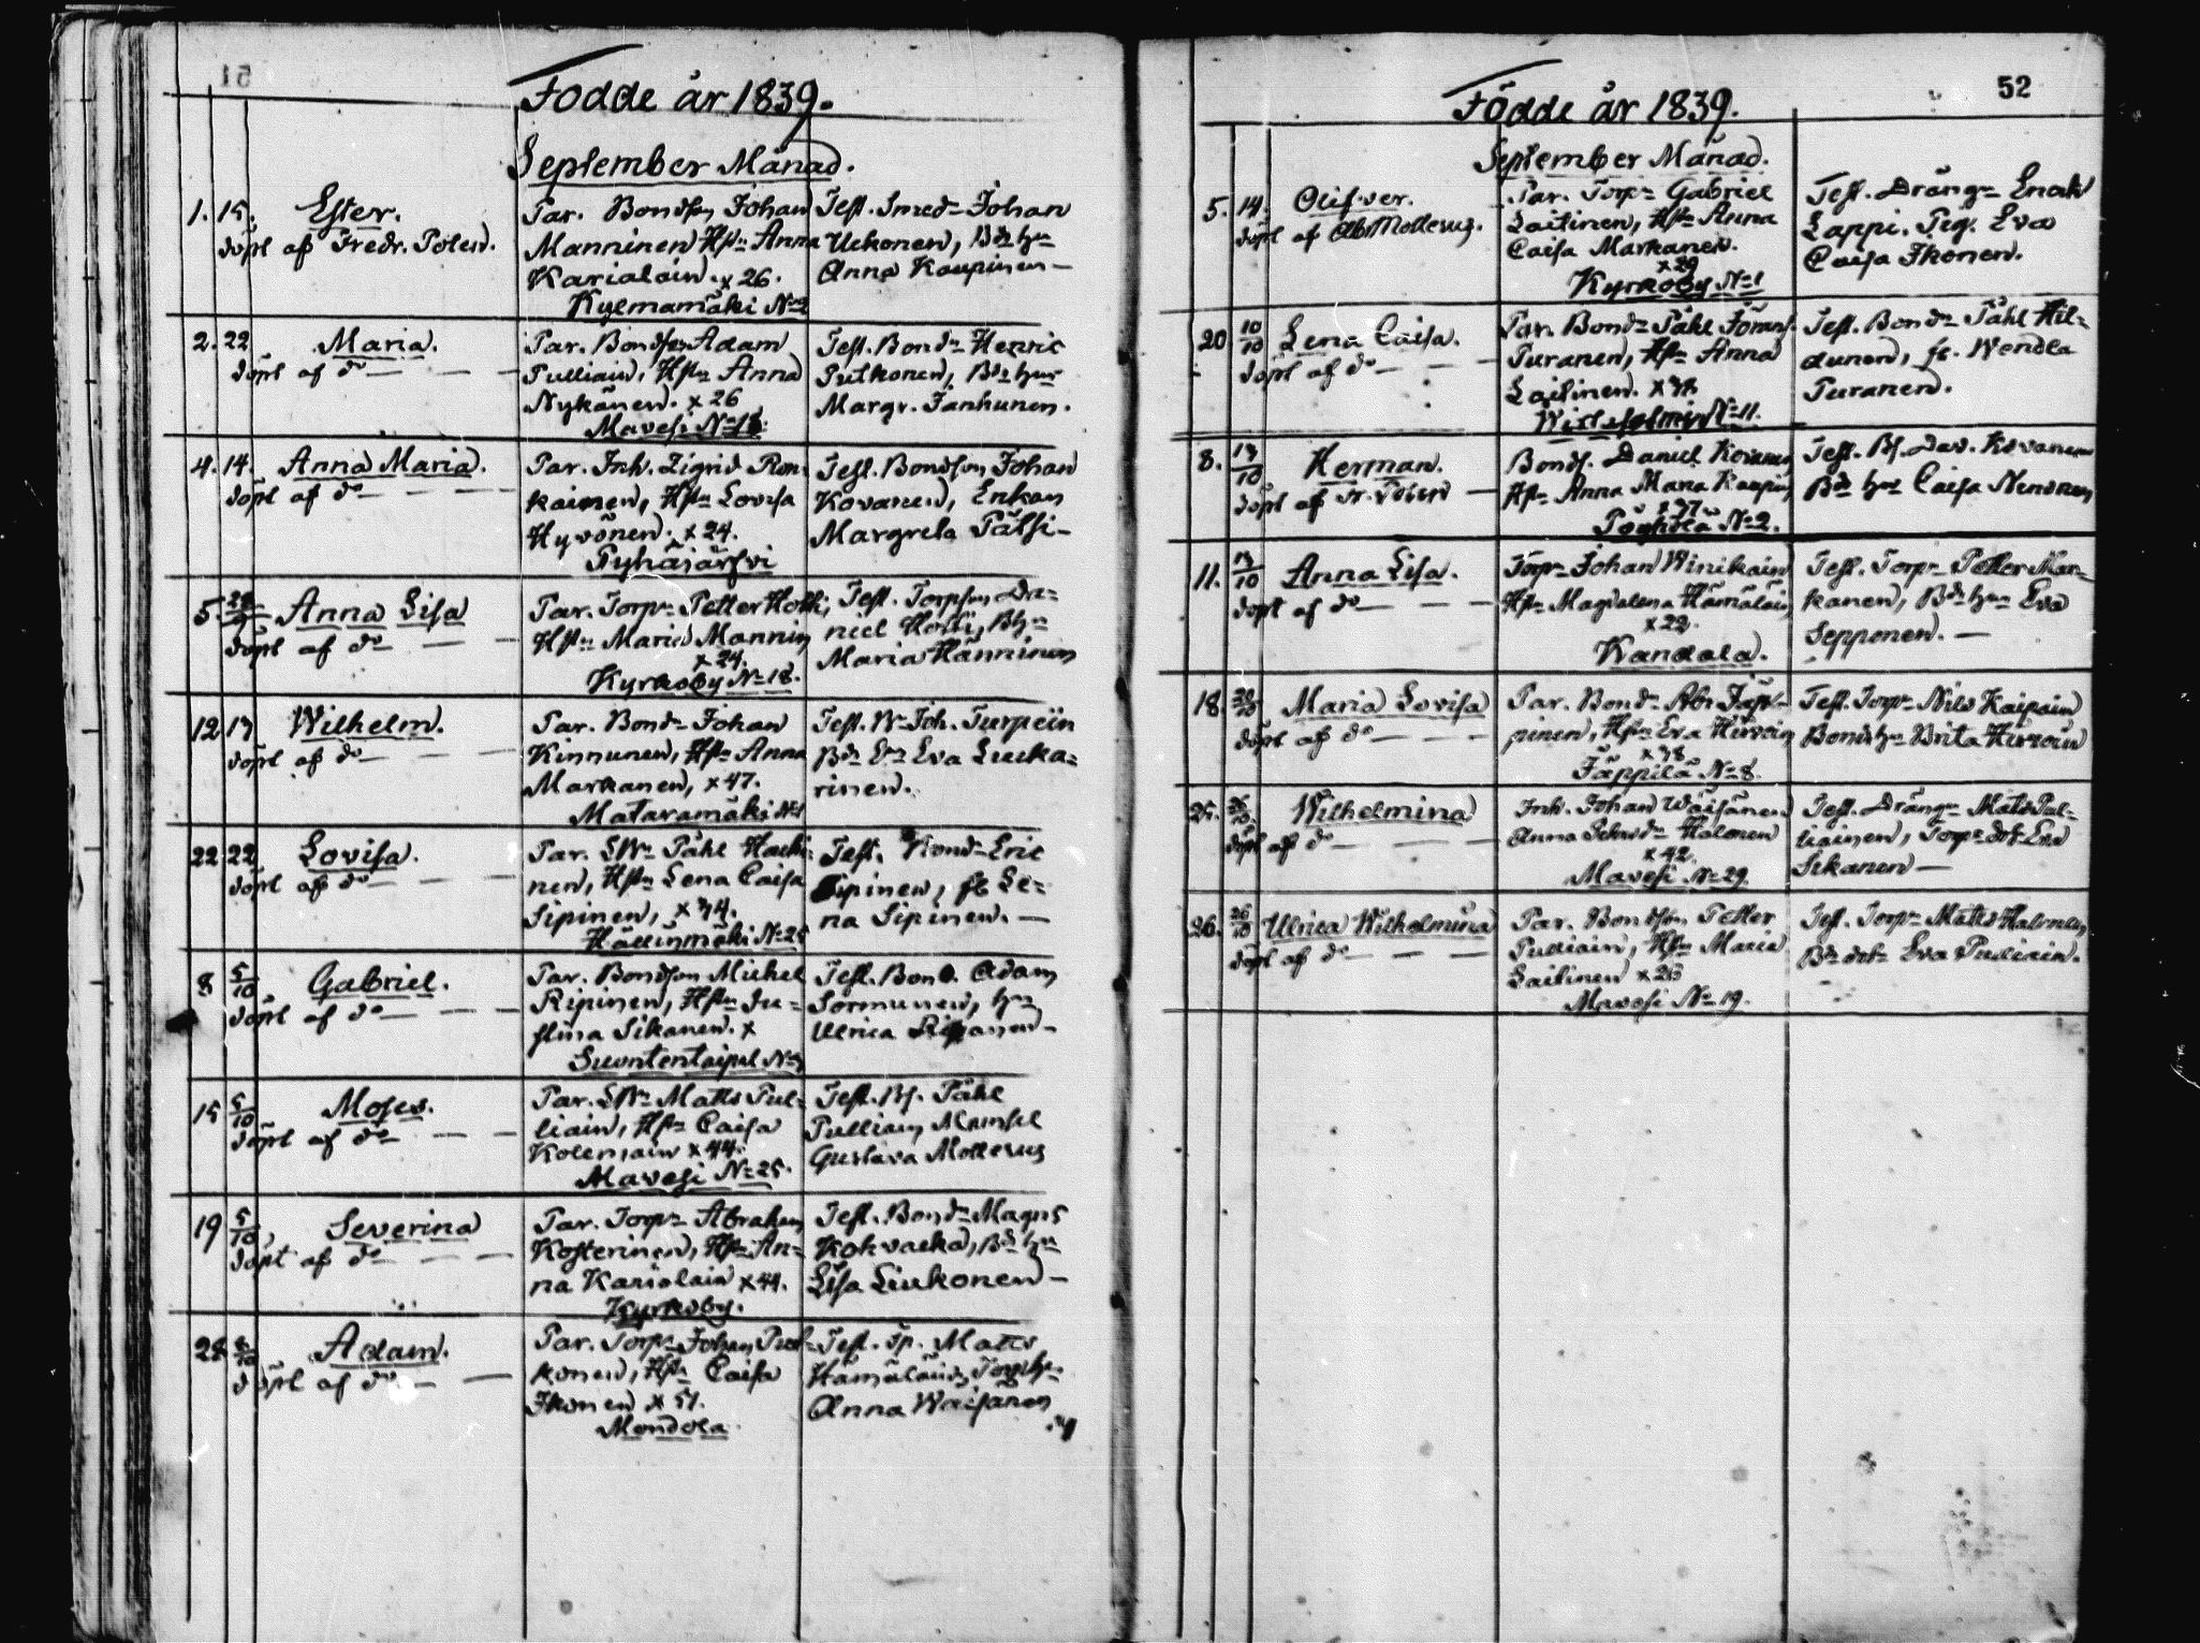 51
Födde år 1839.
September Månad.
1. 15. Ester.
döpt af Fredr. Polén.
Par. Bondson Johan
Manninen Hstr Anna
Karialain. x 26.
Kylmamäki No 2
Test. Smed Johan
Uckonen, Bde hu
Anna Kaupinen —
2. 22 Maria.
döpt af do — — —
Par. Bondson Adam
Pulliain, Hstr Anna
Nykänen. x 26
Mavesi No 18.
Test. Bond. Henric
Putkonen, Bde hu
Margr. Janhunen.
4. 14. Anna Maria.
döpt af do — — —
Par. Inh. Zigrid Ron-
kainen, Hstr Lovisa
Hyvönen. x 24.
Pyhäjärfvi
Test. Bondson Johan
Kovanen, Enkan
Margreta Pätsi —
5 Anna Lisa
döpt af do — —
Par. Torp. Petter Hotti,
Hstr Maria Mannin
x 24.
Kyrkoby No 18.
Test. Torpson Da-
niel Hotti, Bhu
Maria Hänninen
12 17 Wilhelm.
döpt af do — —
Par. Bond. Johan
Kinnunen, Hstr Anna
Markanen, x 47.
Mataramäki No 1
Test. Joh. Turpein
Eva Lucka-
rinen.
22 22 Lovisa.
döpt af do — — —
Par. Påhl Hacki-
nen, Hstr Lena Caisa
Sipinen, x 34.
Hällinmäki No 25
Test. Bond. Eric
Sipinen, Le-
na Sipinen. —
8 5/10 Gabriel.
döpt af do — — —
Par. Bondson Michel
Ripinen, Hstr Ju-
stina Sikanen. x
Suontentaipal No
Test. Bond. Adam
Sormunen, hu
Ulrica
15 5/10 Moses.
döpt af do — — —
Par. Matts Pul-
liain, Hstr Caisa
x 44.
Mavesi No 25.
Test. Bs. Påhl
Pulliain,
Gustava Mollerus
19 5/10 Severina
döpt af do — — —
Par. Torp. Abraham
Kosterinen, Hstr An-
na Karialain x 44.
Kyrkoby.
Test. Bond. Magns
Kohvacka, Bde hu
Lisa Liukonen —
28 Adam.
döpt af do — —
Par. Torp. Johan Put-
konen, Hstr Caisa
Ikonen x 51.
Mondola
Test. Tp. Matts
Hämäläin,
Anna Waisänen
52
Födde år 1839.
September Månad.
5. 14.
döpt af Abr Mollerus.
Par. Torp. Gabriel
Laitinen, Hstr Anna
Caisa Markanen.
x 29
Kyrkoby No 1
Test. Dräng. Enok
Lappi. Pig. Eva
Caisa Ikonen.
20 10/10 Lena Caisa.
döpt af do — —
Par. Bond. Påhl Jöranss.
Puranen, Hstr Anna
Laitinen. x 38
No 11.
Test. Bond. Påhl Hil-
dunen, Wendla
Puranen.
8. 13/10 Herman.
döpt af Fr. Polén —
Bonds. Daniel Kovanen
Hstr Anna Maria Kaupin
x 37
Pöyhölä No 2.
Test. Bs. Dav. Kovanen
Bde hu Caisa Nenonen
11. 13/10 Anna Lisa.
döpt af do — — —
Torp. Johan Winikain
Hstr Magdalena Hämäläin
x 22.
Kandala.
Test. Torp. Petter Mar-
kanen, Bde hu Eva
Sepponen. —
18. 20/10 Maria Lovisa
döpt af do — — —
Par. Bond. Abr Jäp-
pinen, Hstr Eva Hirvoin
x 38
Jäppilä No 8.
Test. Torp. Nils Kaipain
Bondshu Brita Hirvoin
25. 26/10. Wilhelmina
döpt af do — — —
Inh. Johan Waisänen
Anna Halonen
x 42.
Mavesi No 29.
Test. Dräng. Matts Pul-
liainen, Torp. dotr Eva
Sikanen —
26. 26/10 Ulrica Wilhelmina
döpt af do — — —
Par. Bondson Petter
Pulliain, Hstr Maria
Laitinen x 26
Mavesi No 19.
Test. Torp. Matts Halonen,
Bde dotr Eva Pulliain.